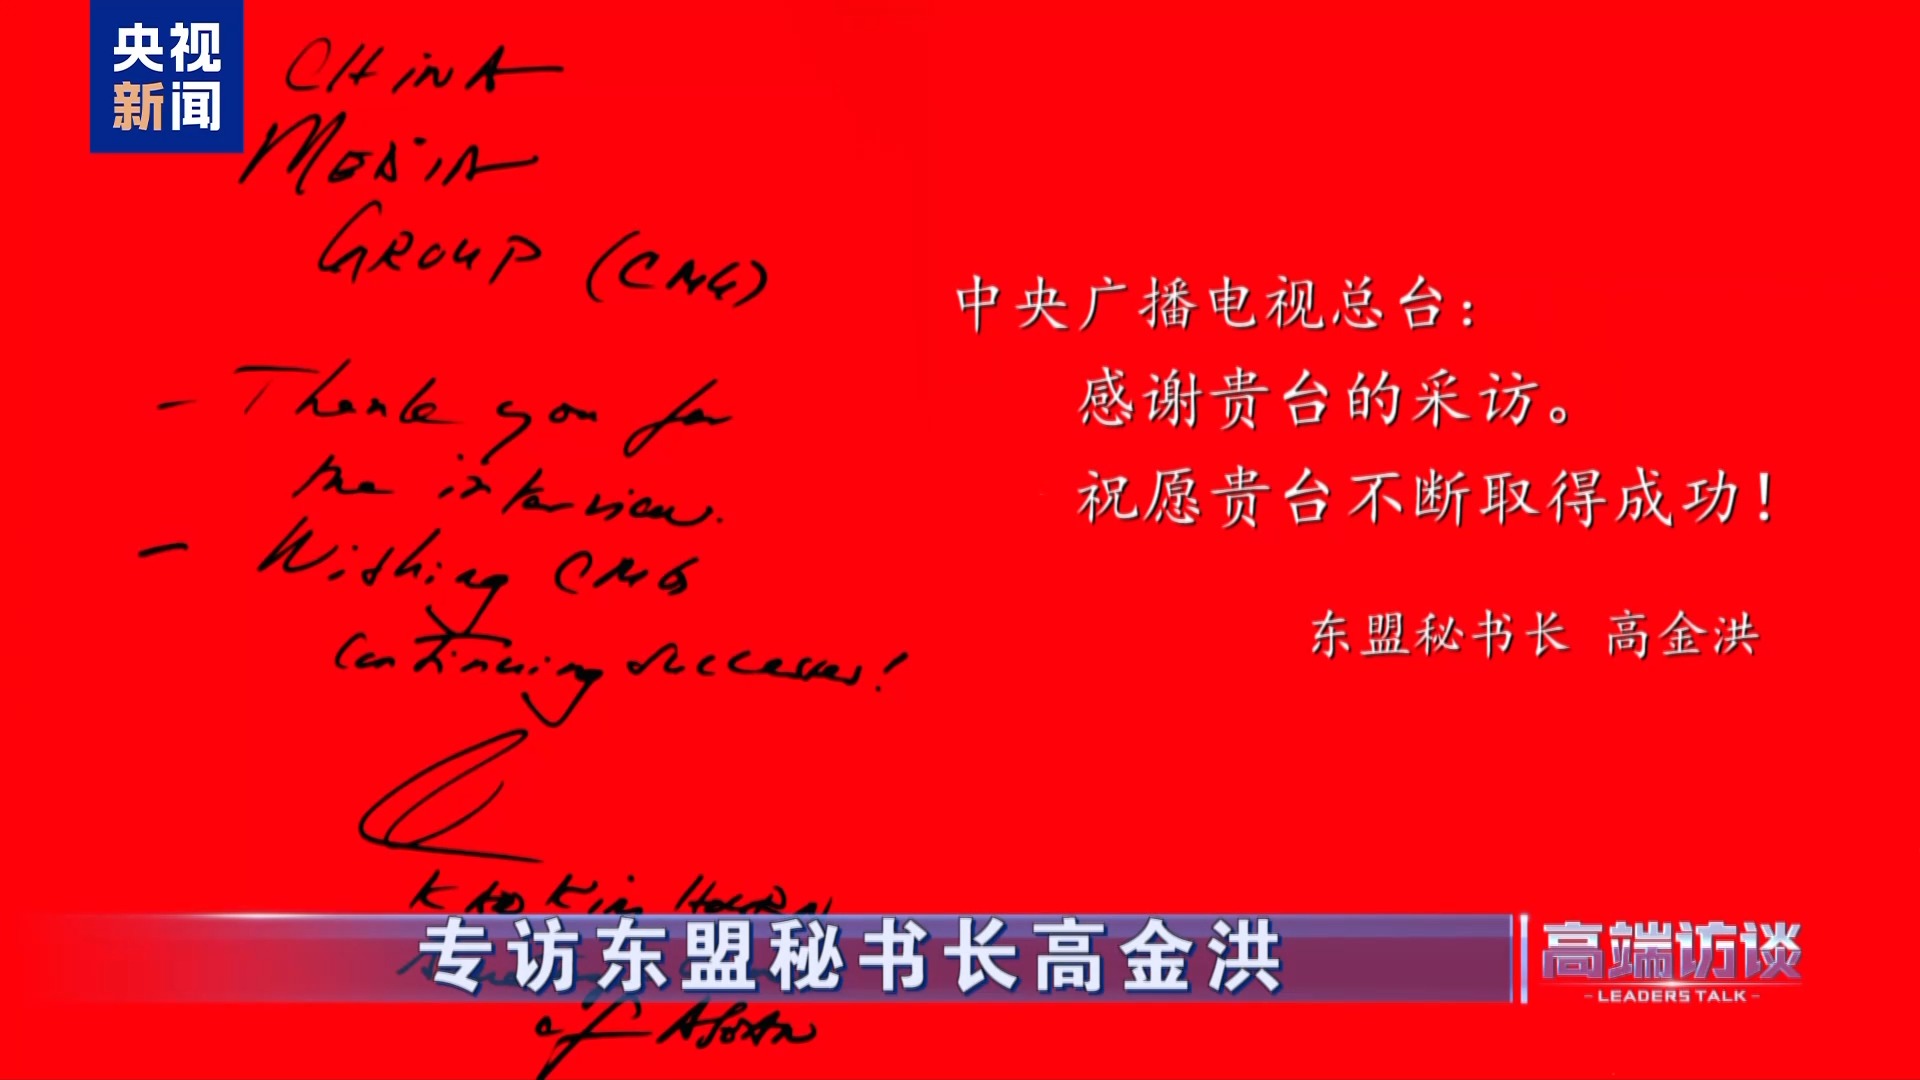 央视
新闻
CHINA
MEDIA
GROUP (CMG)
- Thank you for
the interview.
- Wishing CMG
continuing successes!
KAO KIM HOURN
of ASEAN
中央广播电视总台：
感谢贵台的采访。
祝愿贵台不断取得成功！
东盟秘书长 高金洪
专访东盟秘书长高金洪
高端访谈
- LEADERS TALK -